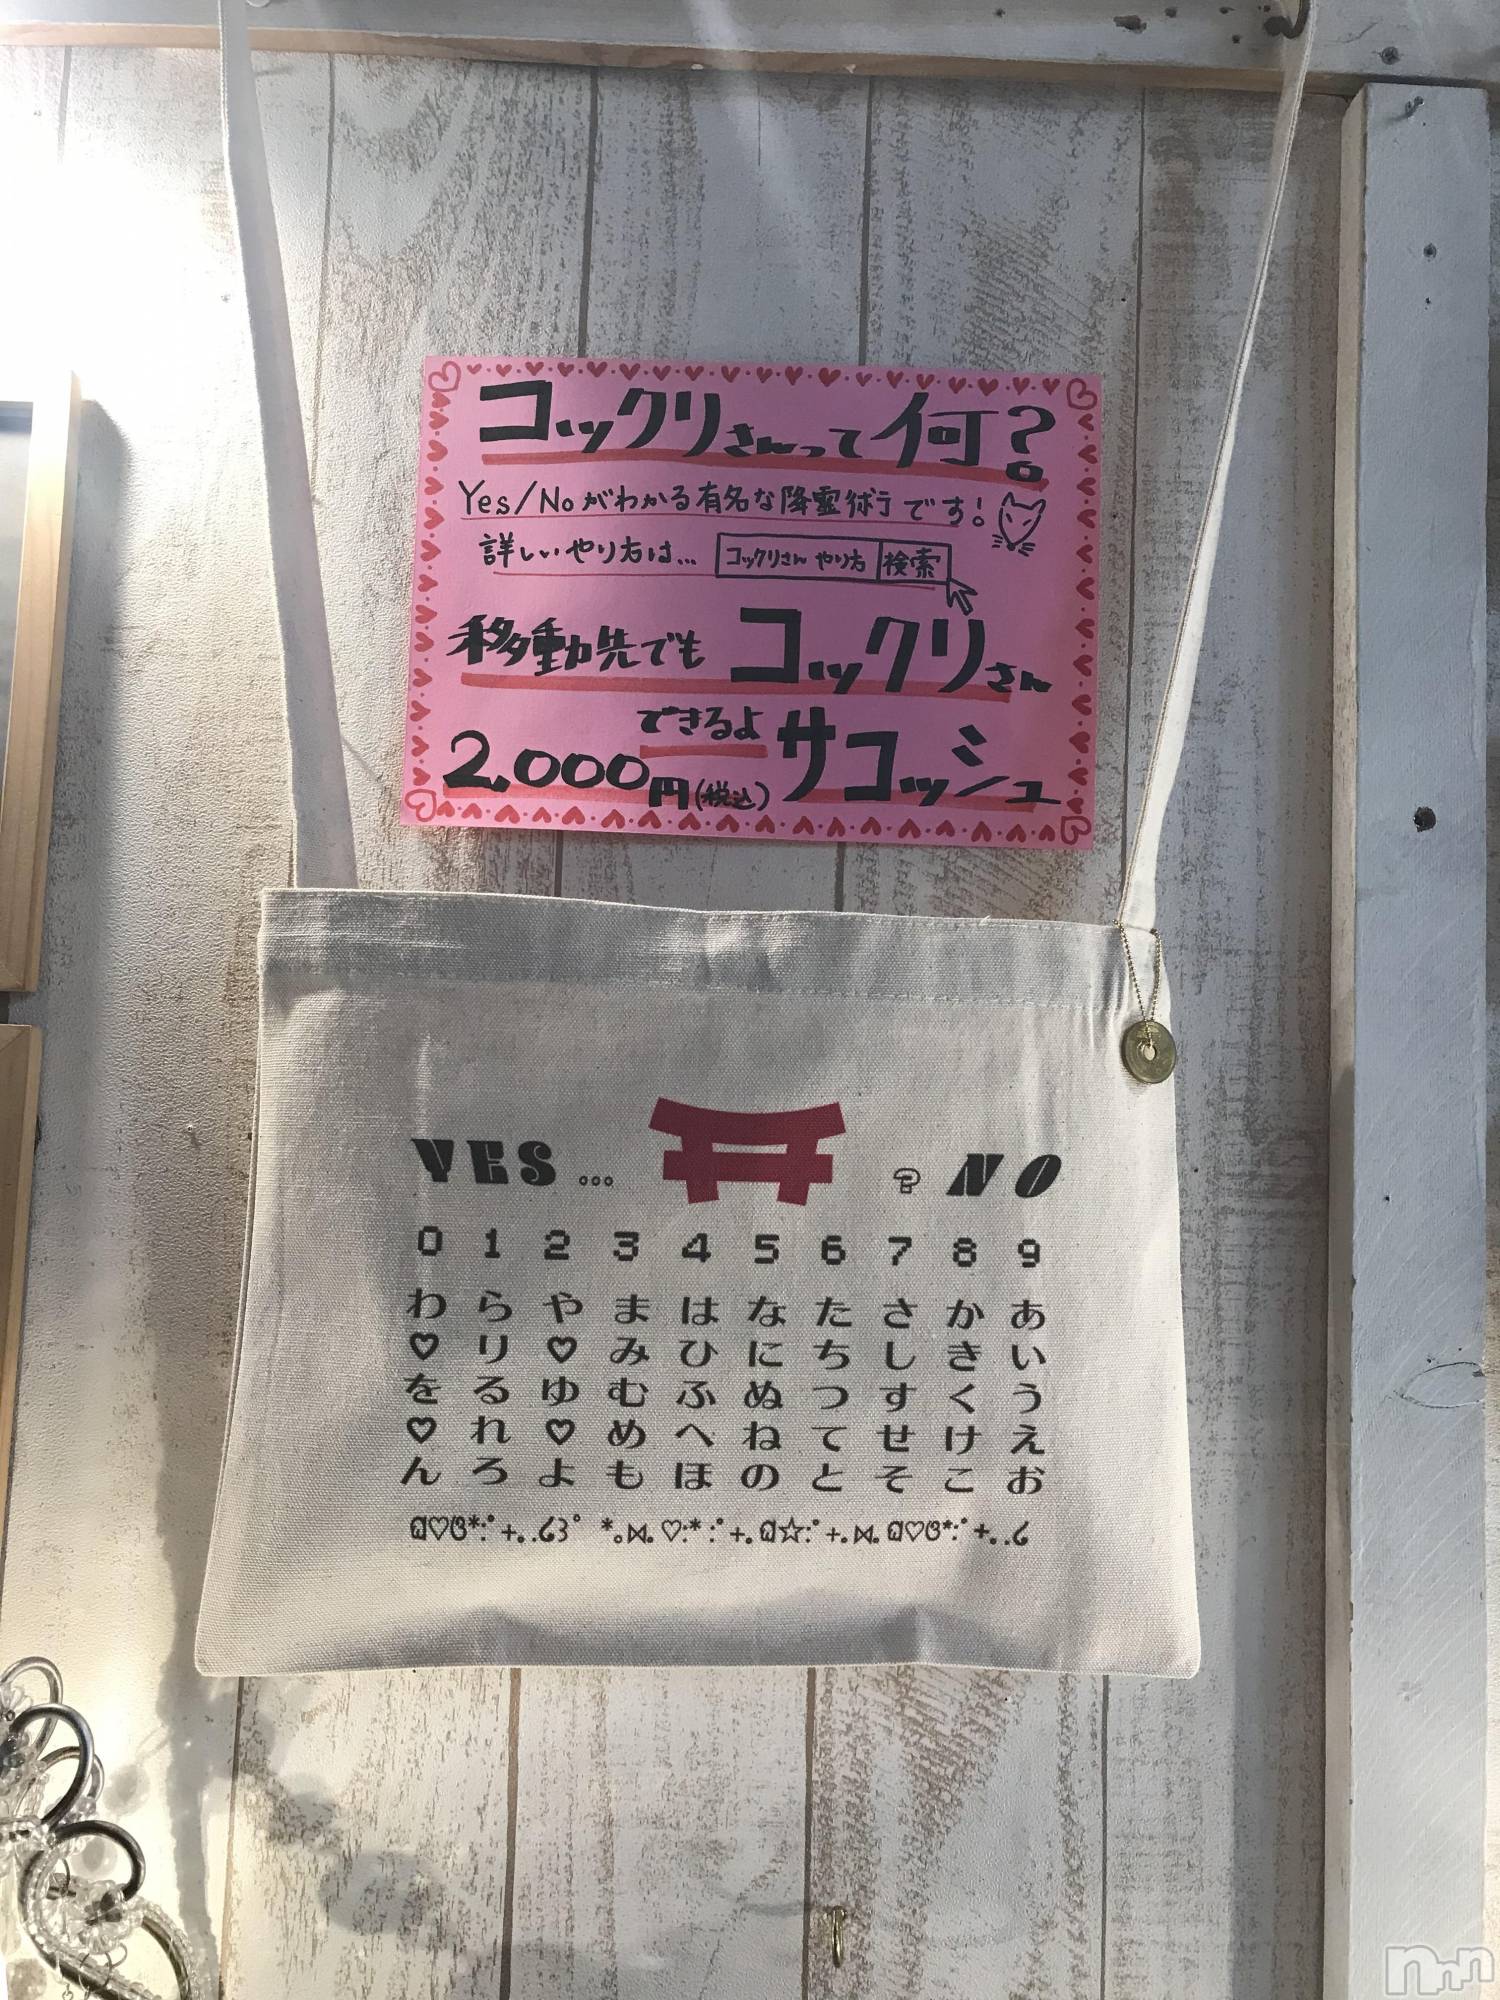 コックリさんって何?
Yes/Noがわかる有名な降霊術です!
詳しいやり方は… コックリさん やり方 検索
移動先でもコックリさん
できるよ
2,000円(税込)サコッシュ
YES... ? NO
0 1 2 3 4 5 6 7 8 9
わ ら や ま は な た さ か あ
♡ り ♡ み ひ に ち し き い
を る ゆ む ふ ぬ つ す く う
♡ れ ♡ め へ ね て せ け え
ん ろ よ も ほ の と そ こ お
nnn